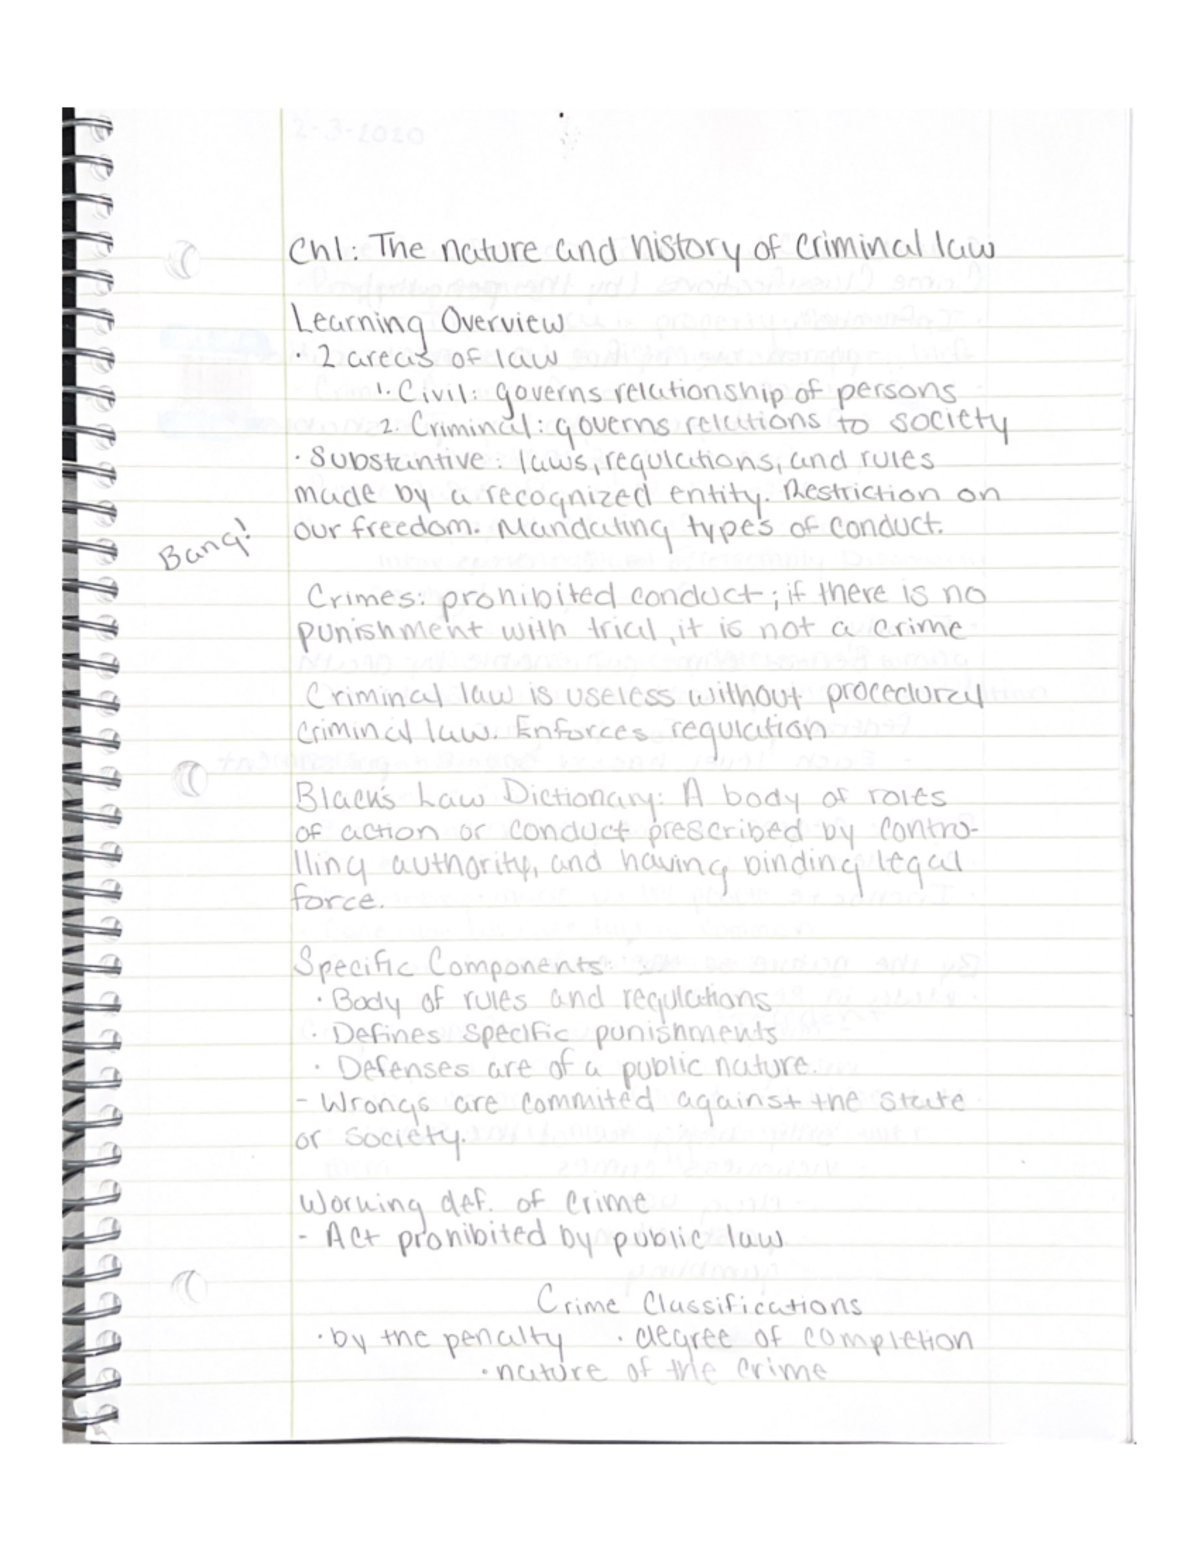 2-3-2020
Ch1: The nature and history of Criminal law
Learning Overview
· 2 areas of law
1. Civil: governs relationship of persons
2. Criminal: governs relations to society
· Substantive: laws, regulations, and rules
made by a recognized entity. Restriction on
our freedom. Mandating types of conduct.
Bang!
Crimes: prohibited conduct; if there is no
punishment with trial, it is not a crime
Criminal law is useless without procedural
criminal law. Enforces regulation
Black's Law Dictionary: A body of roles
of action or conduct prescribed by contro-
lling authority, and having binding legal
force.
Specific Components:
· Body of rules and regulations
· Defines specific punishments
· Defenses are of a public nature.
- Wrongs are commited against the state
or society.
Working def. of Crime
- Act prohibited by public law
Crime Classifications
· by the penalty · degree of completion
· nature of the crime